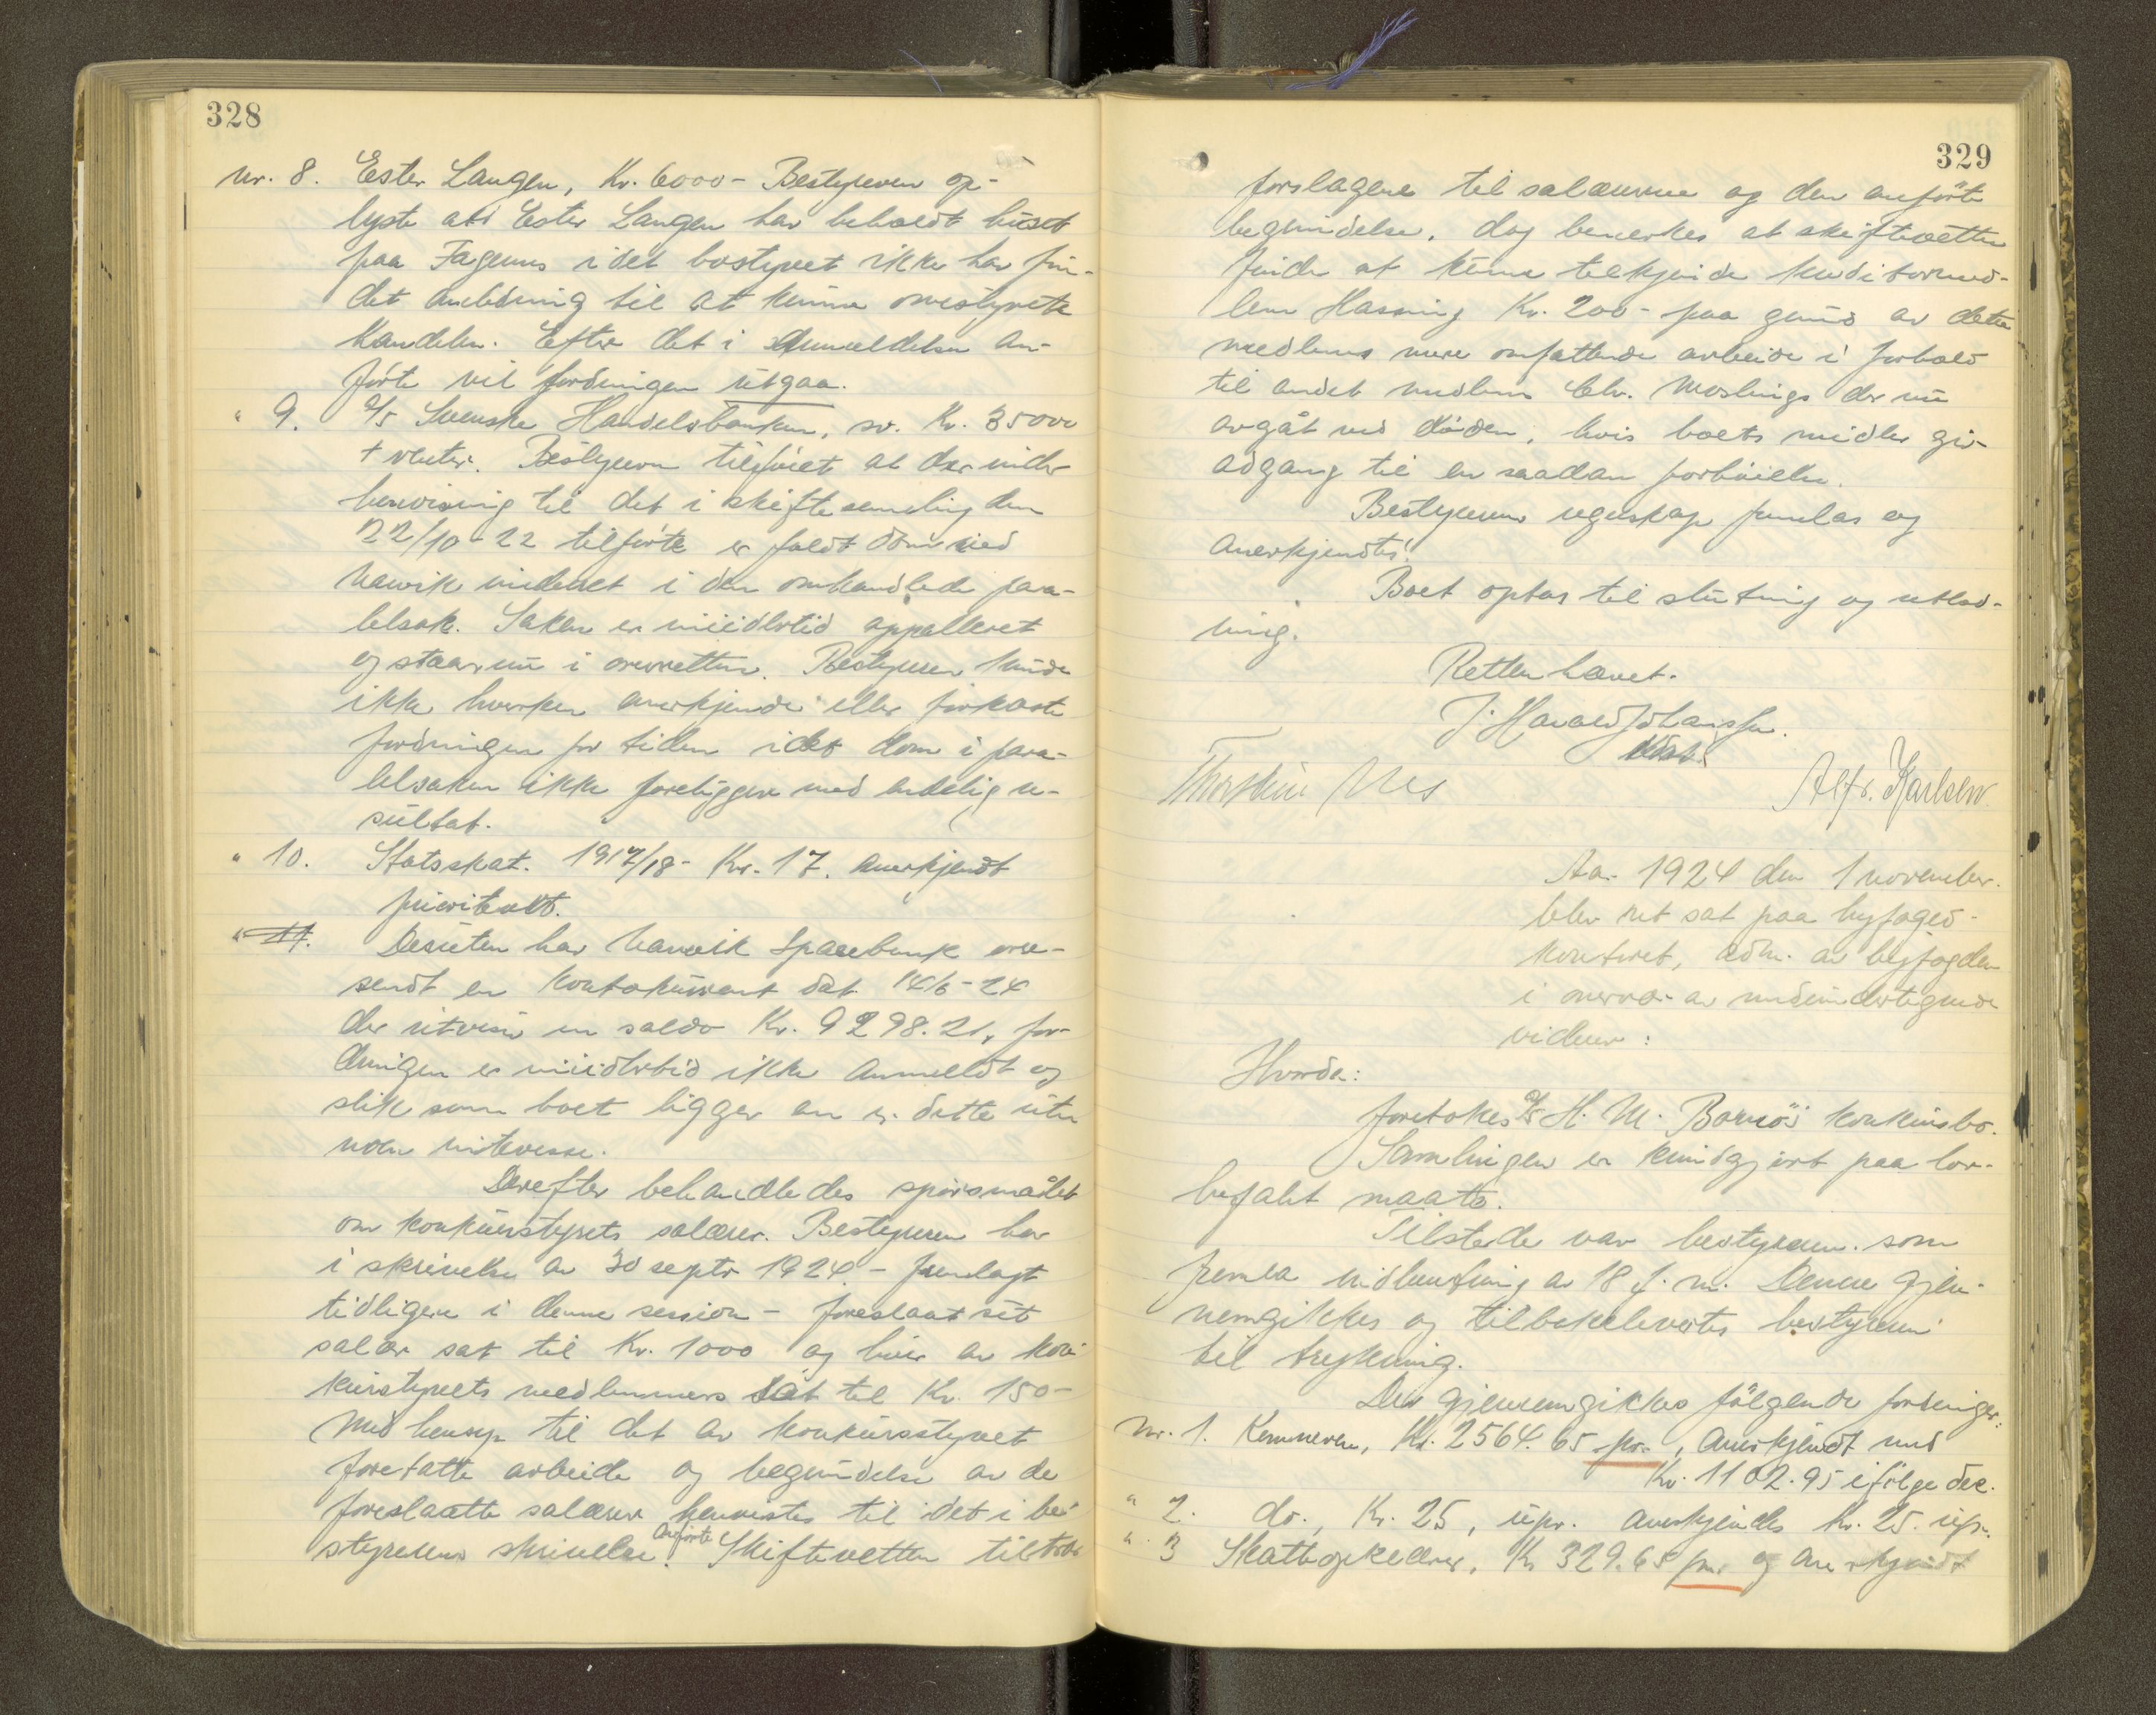 328
Nr. 8. Ester Langen, Kr. 6000 - Bestyreren op-
lyste at Ester Langen har beholdt huset
paa Fagernes idet bostyret ikke har fun-
det anledning til at kunne omstyrte
handelen. Efter det i anmeldelsen an-
førte vil fordringen utgaa.
" 9. A/S Svenske Handelsbanken, sv. Kr. 35000
+ renter. Bestyreren tilføiet at der under
henvisning til det i skiftesamling den
22/10-22 tilførte er faldt dom ved
Narvik underret i den omhandlede para-
lelsak. Saken er imidlertid appelleret
og staar nu i overretten. Bestyreren kunde
ikke hverken anerkjende eller forkaste
fordringen for tiden idet dom i para-
lelsaken ikke foreligger med endelig re-
sultat.
" 10. Statsskat. 1917/18 - Kr. 17. anerkjendt
prioritert.
" 11. Desuten har Narvik Sparebank over-
sendt en kontokurant dat. 14/6-24
der utviser en saldo Kr. 9298.21, for-
dringen er imidlertid ikke anmeldt og
slik som boet ligger an er dette uten
noen interesse.
Derefter behandledes spørsmålet
om konkursstyrets salærer. Bestyreren har
i skrivelse av 30 septr 1924 - fremlagt
tidligere i denne session - foreslaat sit
salær sat til Kr. 1000 og hver av kon-
kursstyrets medlemmers sat til Kr. 150 -
Med hensyn til det av konkursstyret
foretatte arbeide og begrundelse av de
foreslaatte salærer henvistes til det i be-
styrerens skrivelse anførte. Skifteretten tiltrær
329
forslagene til salærerne og den anførte
begrundelse, dog bemerkes at skifteretten
finder at kunne tilkjende kreditormed-
lem Hassing Kr. 200 - paa grund av dette
medlems mere omfattende arbeide i forhold
til andet medlem Chr. Moslings der nu
avgåt ved døden, hvis boets midler gir
adgang til en saadan forhøielse.
Bestyrerens regnskap fremlas og
anerkjendtes.
Boet optas til slutning og utlod-
ning.
Retten hævet.
J. Harald Johanssen.
Thorstein Nes
Alfr. Karlsen
Aar 1924 den 1 november.
blev ret sat paa byfoged-
kontoret, adm. av byfogden
i overvær av undertegnede
vidner:
Hvorda:
foretokes A/S H. M. Bornø's konkursbo.
Samlingen er kundgjort paa lov-
befalt maate.
Tilstede var bestyreren som
fremla indberetning av 18 f. m. Denne gjen-
nemgikkes og tilbakelevertes bestyreren
til trykning.
Der gjennemgikkes følgende fordringer:
Nr. 1. Kemneren, Kr. 2564.65 pr., anerkjendt med
Kr. 1102.95 ifølge dec.
" 2. do., Kr. 25, upr. anerkjendes kr. 25. upr.
" 3 Skatteopkræver, Kr 329.65 pr. og anerkjendt